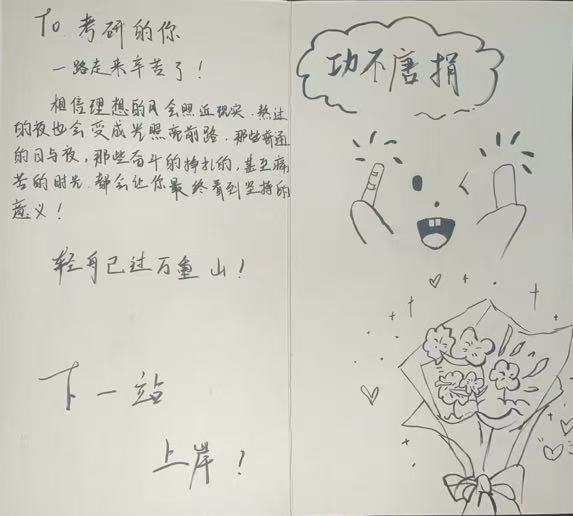 To 考研的你
一路走来辛苦了！
相信理想的月会照近现实.熬过
的夜也会变成光照亮前路.那些普通
的日与夜,那些奋斗的挣扎的,甚至痛
苦的时光.都会让你最终看到坚持的
意义！
轻舟已过万重山！
下一站
上岸！
功不唐捐